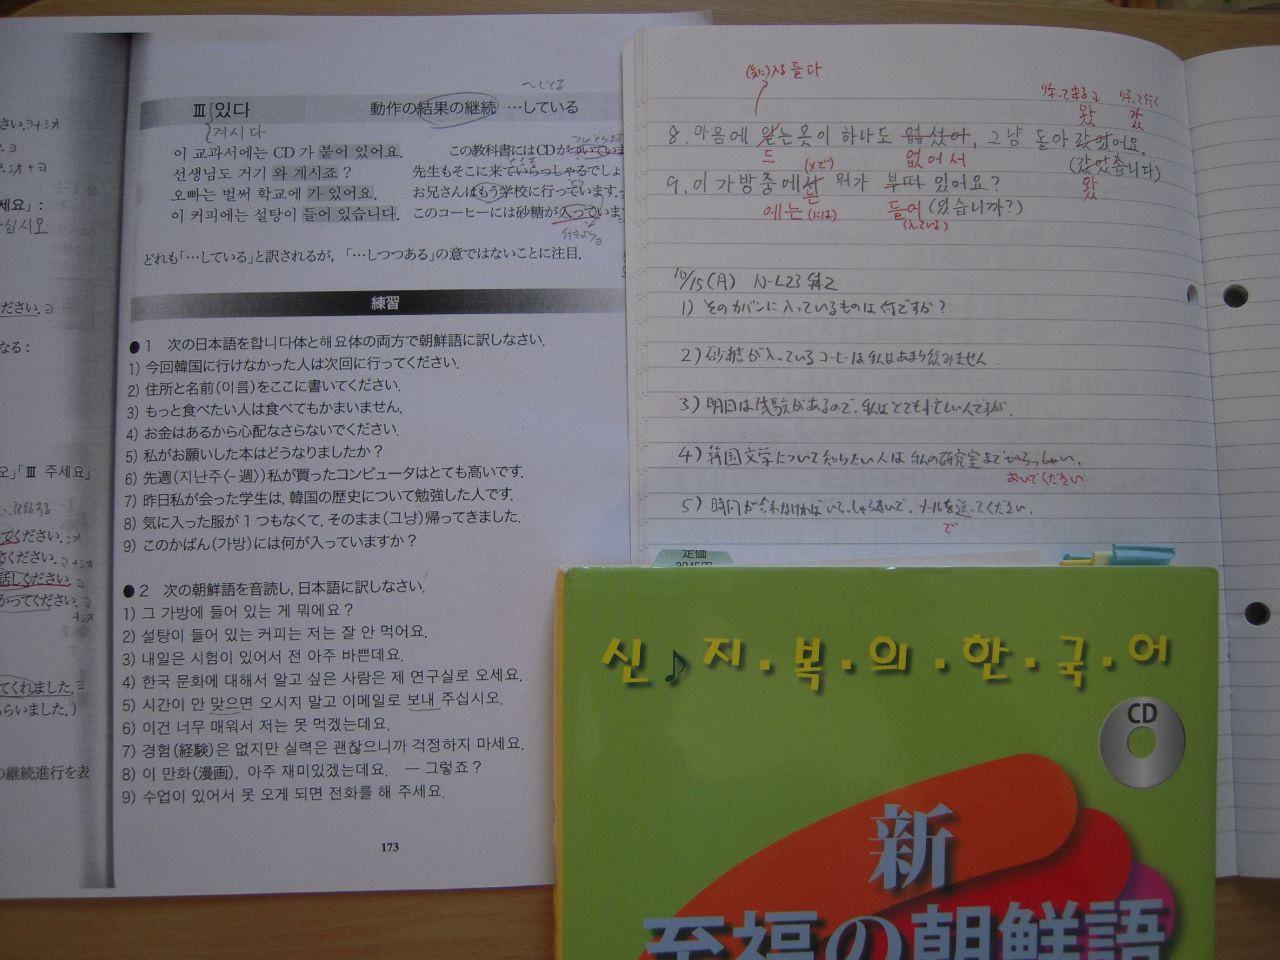 さい.ヨ+オ
Ⅲ 있다 動作の結果の継続 …している
～している
겨시다
이 교과서에는 CD가 붙어 있어요. この教科書にはCDが
선생님도 거기 와 계시죠? 先生もそこに来ていらっしゃるでしょ
오빠는 벌써 학교에 가 있어요. お兄さんはもう学校に行っています.
이 커피에는 설탕이 들어 있습니다. このコーヒーには砂糖が入っています
どれも「…している」と訳されるが, 「…しつつある」の意ではないことに注目.
練習
●1 次の日本語を합니다体と해요体の両方で朝鮮語に訳しなさい.
1) 今回韓国に行けなかった人は次回に行ってください.
2) 住所と名前(이름)をここに書いてください.
3) もっと食べたい人は食べてもかまいません.
4) お金はあるから心配なさらないでください.
5) 私がお願いした本はどうなりましたか?
6) 先週(지난주〈-週〉)私が買ったコンピュータはとても高いです.
7) 昨日私が会った学生は, 韓国の歴史について勉強した人です.
8) 気に入った服が1つもなくて, そのまま(그냥)帰ってきました.
9) このかばん(가방)には何が入っていますか?
●2 次の朝鮮語を音読し, 日本語に訳しなさい.
1) 그 가방에 들어 있는 게 뭐에요?
2) 설탕이 들어 있는 커피는 저는 잘 안 먹어요.
3) 내일은 시험이 있어서 전 아주 바쁜데요.
4) 한국 문화에 대해서 알고 싶은 사람은 제 연구실로 오세요.
5) 시간이 안 맞으면 오시지 말고 이메일로 보내 주십시오.
6) 이건 너무 매워서 저는 못 먹겠는데요.
7) 경험(経験)은 없지만 실력은 괜찮으니까 걱정하지 마세요.
8) 이 만화(漫画), 아주 재미있겠는데요. ― 그렇죠?
9) 수업이 있어서 못 오게 되면 전화를 해 주세요.
173
せよ」:
십시오
ださい.ヨ
なる:
요」「Ⅲ 주세요」
てください.
ください.
話しください.
かってください.
てくれました.ヨ
らいました.)
の継続進行を表
(気に)入る 들다
帰って来る 帰って行く
왔 갔
8. 마음에 는 옷이 하나도 없셨어, 그냥 돌아 갔었어요.
드 (×で) 없어서 (갔았습니다)
9. 이 가방 중에서 뭐가 부따 있어요? 왔
에는(には) 들어 (있습니까?)
(入っている)
10/15(月) N-L23 練2
1) そのカバンに入っているものは何ですか?
2) 砂糖が入っているコーヒーは私はあまり飲みません.
3) 明日は試験があるので, 私はとても忙しいんですが.
4) 韓国文学について知りたい人は私の研究室までいらっしゃい.
おいでください
5) 時間が合わなければいらっしゃらないで, メールを送ってください.
で
定価
신♪지.복.의.한.국.어
CD
新
至福の朝鮮語